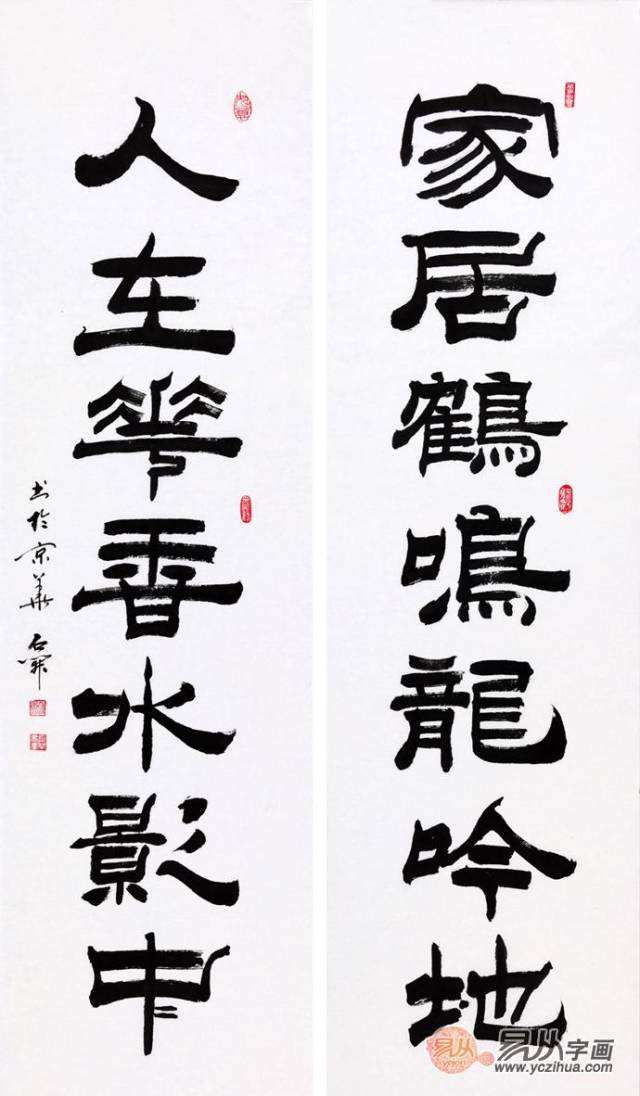 家居鶴鳴龍吟地
人在華香水影中
書於京華 石開
易从字画
www.yczihua.com